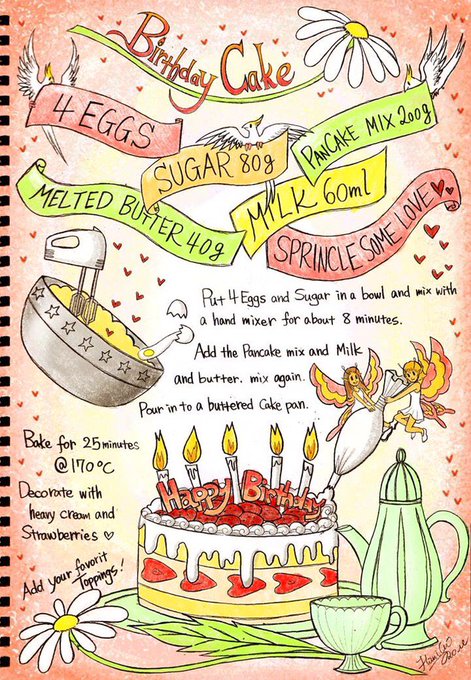 Birthday Cake
4 EGGS
SUGAR 80g
PANCAKE MIX 200g
MELTED BUTTER 40g
MILK 60ml
SPRINCLE SOME LOVE
Put 4 Eggs and Sugar in a bowl and mix with
a hand mixer for about 8 minutes.
Add the Pancake mix and Milk
and butter. mix again.
Pour in to a buttered Cake pan.
Bake for 25 minutes
@170°C
Decorate with
heavy cream and
Strawberries ♡
Add your favorit
Toppings!
Happy Birthday